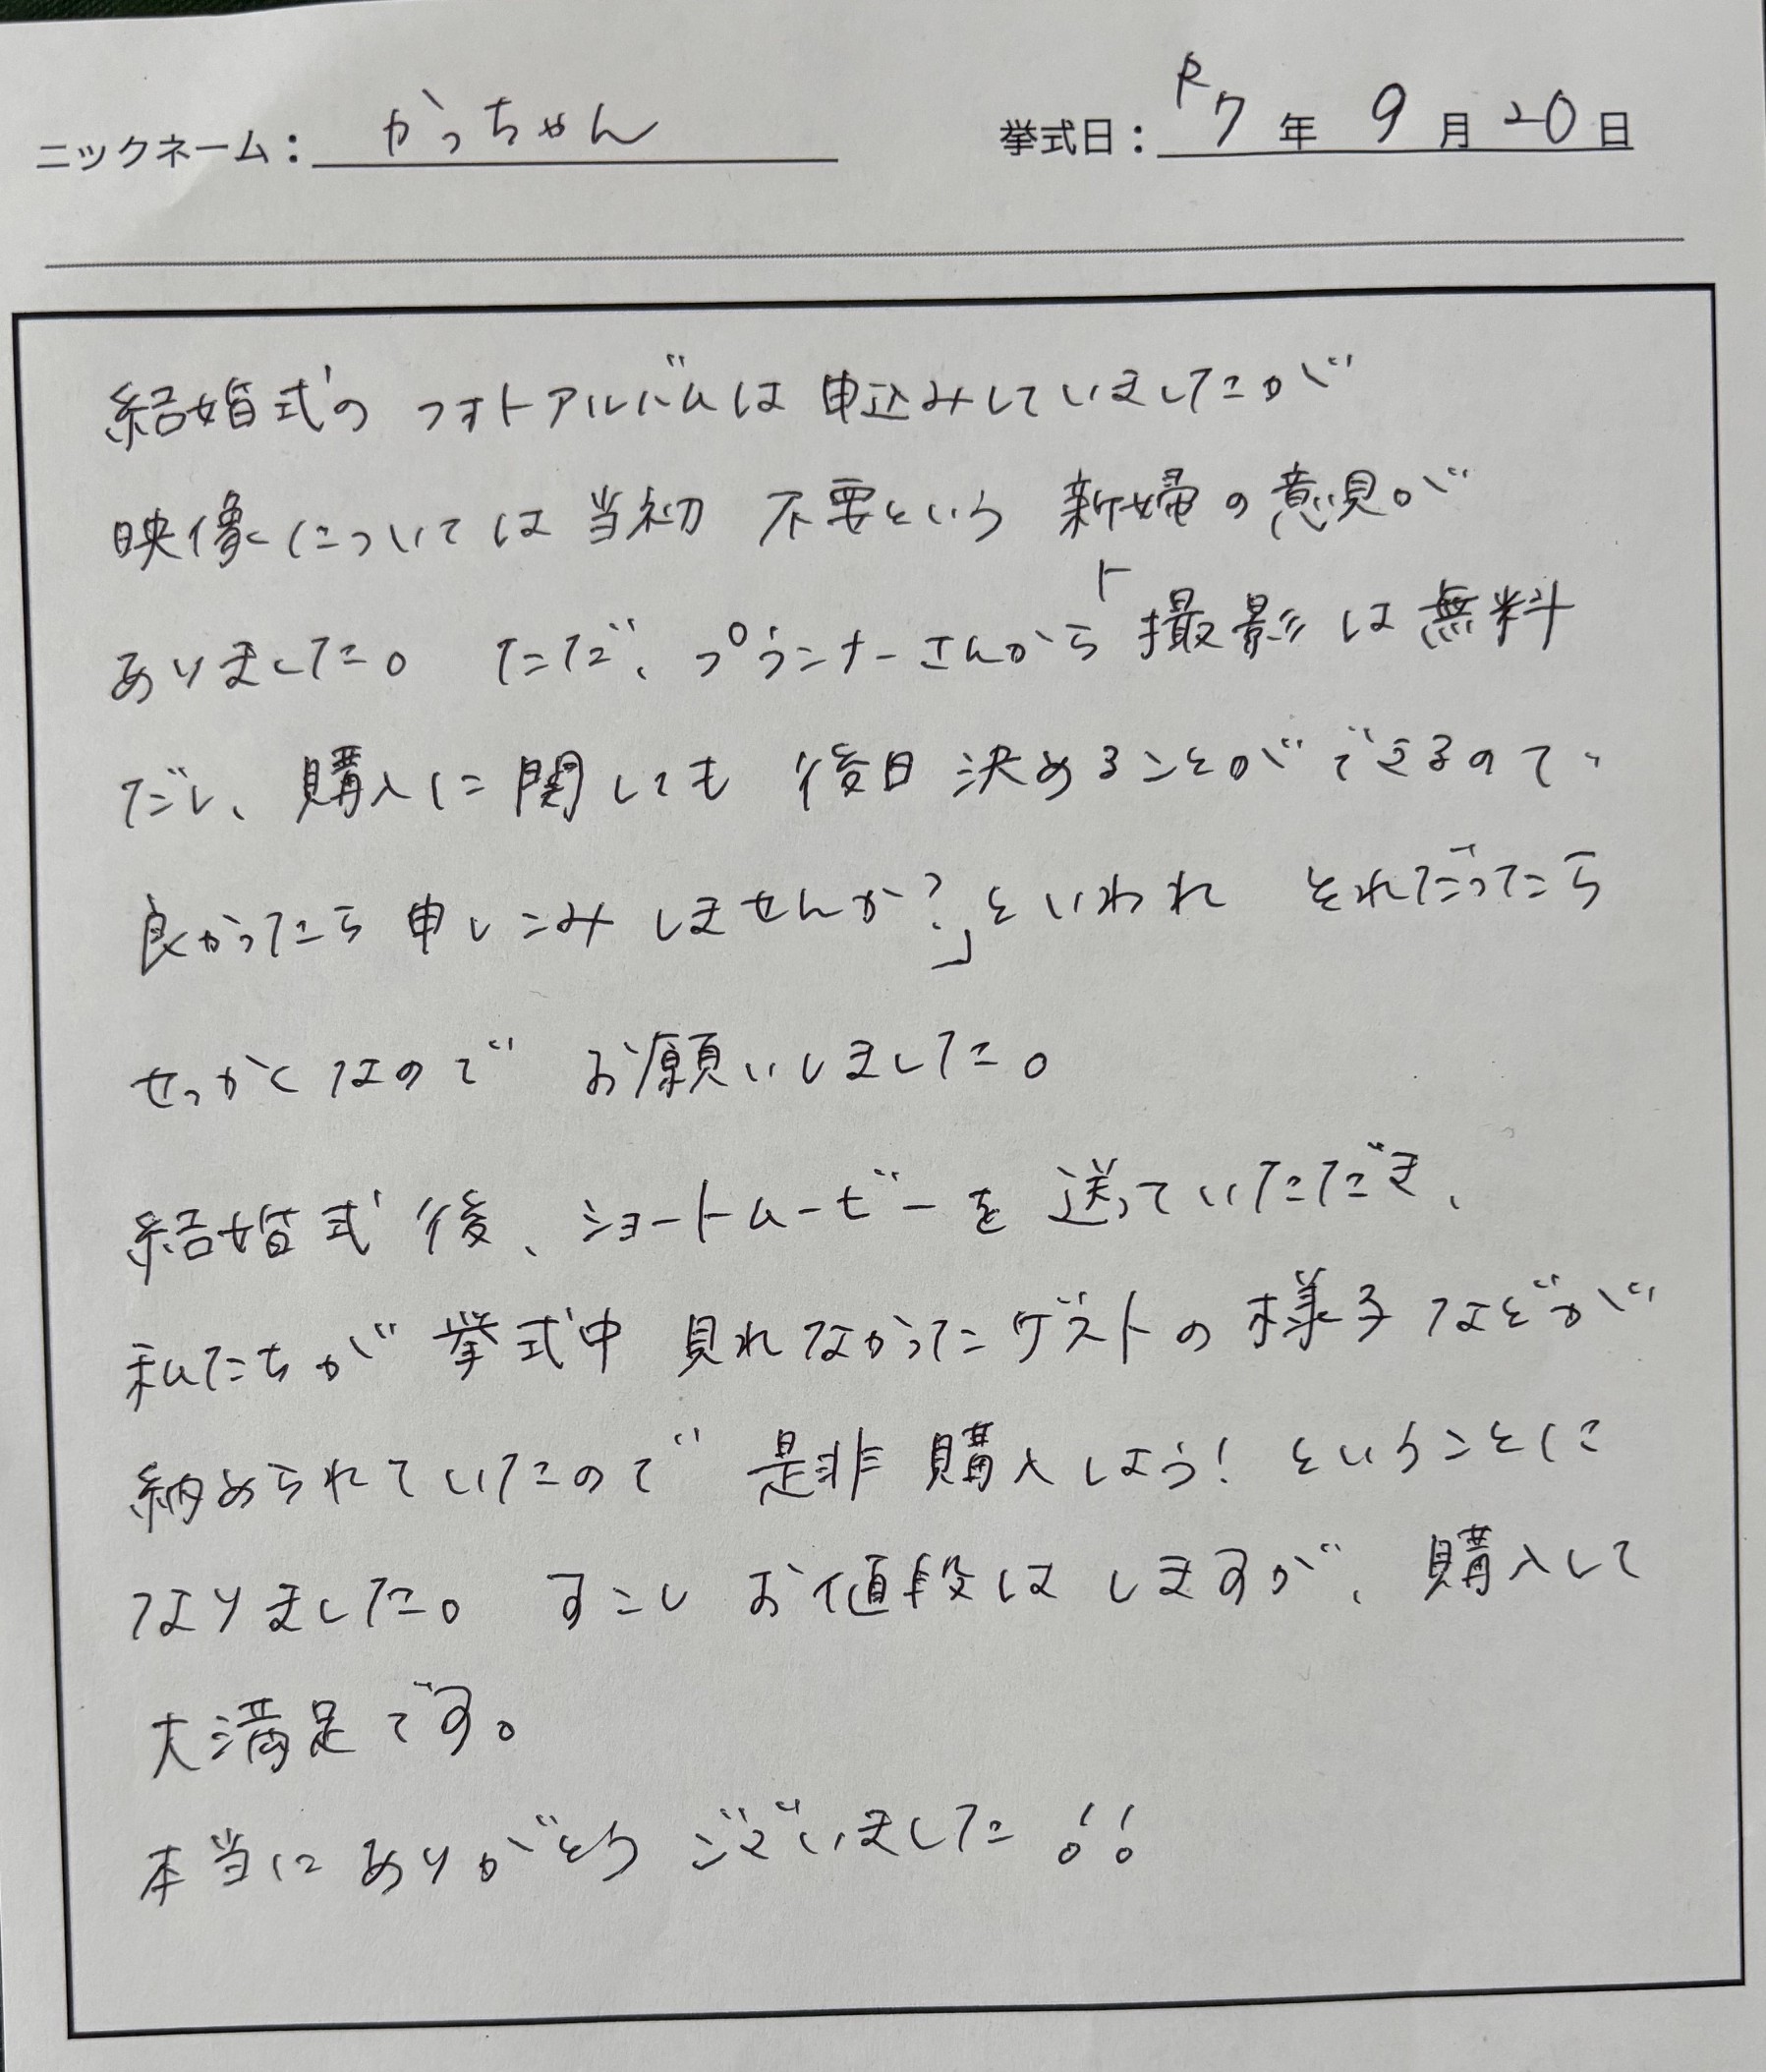 ニックネーム： かっちゃん 挙式日： R7年 9月 20日
結婚式の フォトアルバムは 申込みしていましたが
映像については当初 不要という 新婦の意見が
ありました。 ただ、プランナーさんから「撮影は無料
だし、購入に関しても 後日 決めることができるので、
良かったら 申しこみ しませんか？」といわれ それだったら
せっかくなので お願いしました。
結婚式後、ショートムービーを 送っていただき、
私たちが 挙式中 見れなかったゲストの様子などが
納められていたので 是非 購入しよう！ ということに
なりました。 すこし お値段は しますが、購入して
大満足です。
本当に ありがとう ございました！！